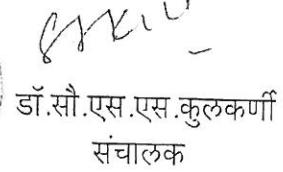 डॉ.सौ.एस.एस.कुलकर्णी
संचालक